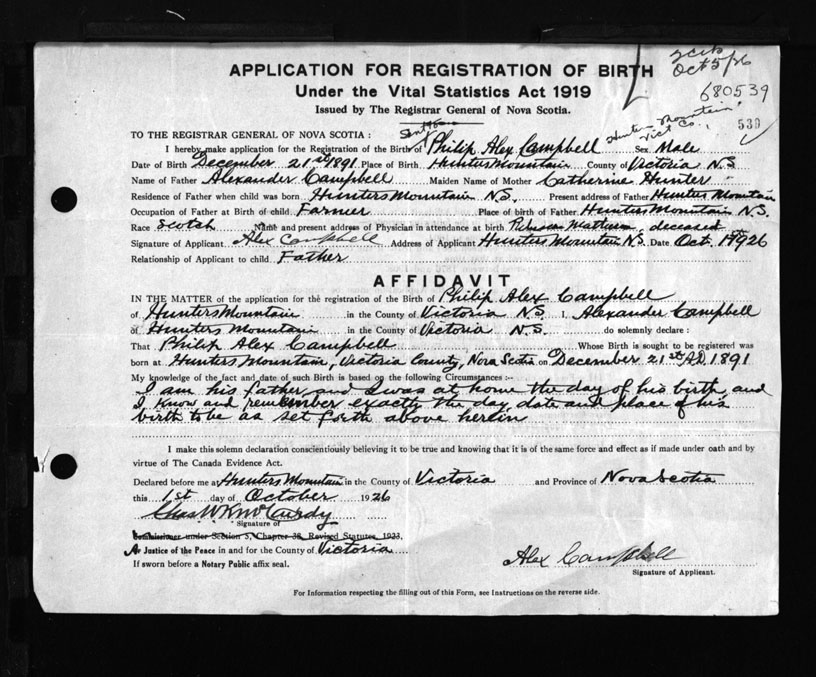 2 certs
Oct 5/26
APPLICATION FOR REGISTRATION OF BIRTH
Under the Vital Statistics Act 1919
Issued by The Registrar General of Nova Scotia.
680539
Hunters Mountain
Vict Co.,
530
TO THE REGISTRAR GENERAL OF NOVA SCOTIA :
I hereby make application for the Registration of the Birth of Philip Alex Campbell Sex Male
Date of Birth December 21st 1891 Place of Birth Hunters Mountain County of Victoria N.S.
Name of Father Alexander Campbell Maiden Name of Mother Catherine Hunter
Residence of Father when child was born Hunters Mountain N.S. Present address of Father Hunters Mountain
Occupation of Father at Birth of child Farmer Place of birth of Father Hunters Mountain N.S.
Race Scotch Name and present address of Physician in attendance at birth deceased
Signature of Applicant Alex Campbell Address of Applicant Hunters Mountain N.S. Date Oct. 1st 1926
Relationship of Applicant to child Father
AFFIDAVIT
IN THE MATTER of the application for the registration of the Birth of Philip Alex Campbell
of Hunters Mountain in the County of Victoria N.S. I, Alexander Campbell
of Hunters Mountain in the County of Victoria N.S. do solemnly declare :
That Philip Alex Campbell Whose Birth is sought to be registered was
born at Hunters Mountain, Victoria County, Nova Scotia on December 21st A.D. 1891
My knowledge of the fact and date of such Birth is based on the following Circumstances :-
I am his father and I was at home the day of his birth, and
I know and remember exactly the day, date and place of his
birth to be as set forth above herein
I make this solemn declaration conscientiously believing it to be true and knowing that it is of the same force and effect as if made under oath and by
virtue of The Canada Evidence Act.
Declared before me at Hunters Mountain in the County of Victoria and Province of Nova Scotia
this 1st day of October 1926
Chas W K McCurdy
Signature of
Commissioner under Section 5, Chapter 38, Revised Statutes, 1923,
A Justice of the Peace in and for the County of Victoria
If sworn before a Notary Public affix seal.
Alex Campbell
Signature of Applicant.
For Information respecting the filling out of this Form, see Instructions on the reverse side.